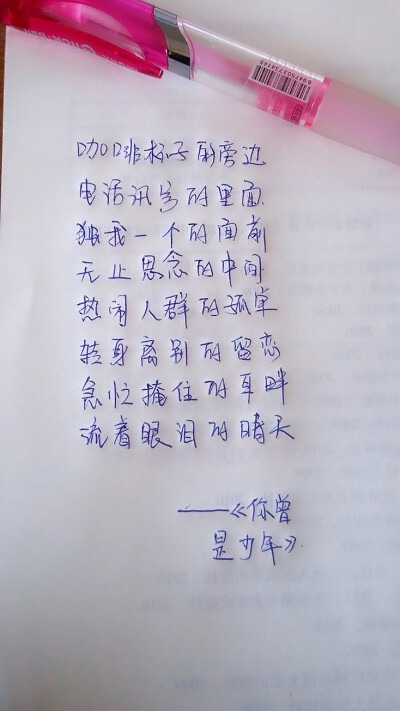 咖啡杯子的旁边
电话讯号的里面
独我一个的面前
无止思念的中间
热闹人群的孤单
转身离别的留恋
急忙掩住的耳畔
流着眼泪的晴天
——《你曾
是少年》